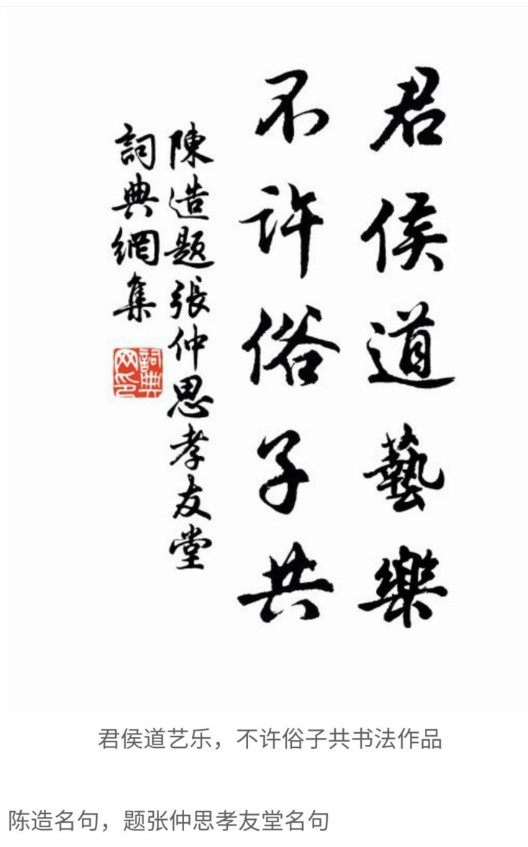 君侯道藝樂
不许俗子共
陳造题張仲思孝友堂
詞典網集
詞典网印
君侯道艺乐，不许俗子共书法作品
陈造名句，题张仲思孝友堂名句